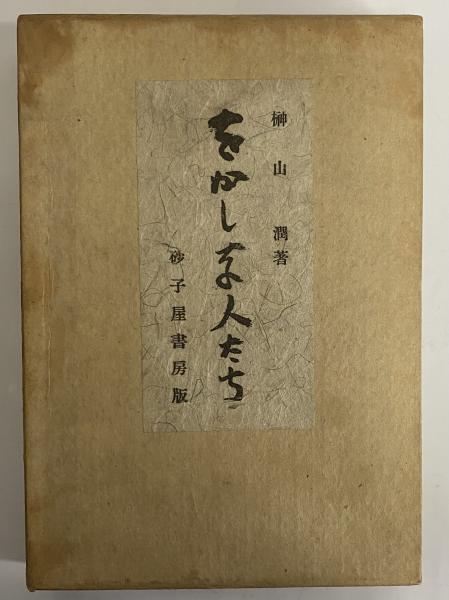 榊山潤著
をかしな人たち
砂子屋書房版